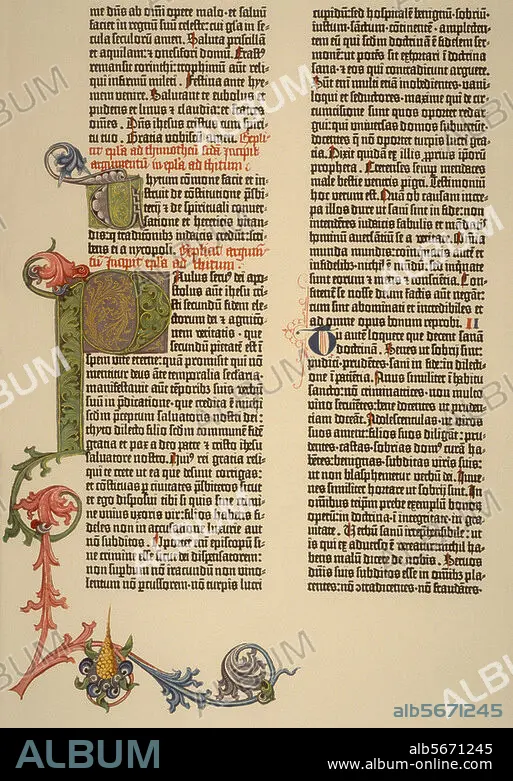 me dn̄s ab om̄i opere malo · et saluū
faciet in regnū suū celeste: cui gl̄ia in se=
cula seculorū amen. Saluta priscillā
et aquilam: ⁊ onesifori domū. Erastꝰ
remansit corinthi: trophimū aūt reli=
qui infirmū mileti. Festina ante hye=
mem venire. Salutant te eubolus et
pudens et linus ⁊ claudia: et fratres
om̄es. Dn̄s ihesus cristus cū spiritu
tuo. Gratia vobiscū amen. Expli=
cit ep̄la ad thimotheū sc̄da incipit
argumentū in ep̄la ad thitum.
Thytum cōmone facit et in=
struit de cōstitutione p̄sbi=
terij ⁊ de spirituali conuer=
satione et hereticis vitan=
dis: q̄ traditionibꝫ iudaicis credūt: scri=
bens ei a nycopoli. Explicit argum̄=
tū Incipit ep̄la ad thitum.
Paulus seruꝰ dei apo=
stolus aūt ihesu cri=
sti secundū fidem elec=
torum dei ⁊ agnitio=
nem veritatis · que
secundū pietatē est ī
spem vite eterne: quā promisit qui nō
mentitur deus ante tempora secularia:
manifestauit aūt tēporibꝫ suis verbū
suū in p̄dicatione · que credita ē michi
scd̄m p̄ceptum saluatoris nostri dei:
thyto dilecto filio scd̄m cōmunē fidē:
gratia et pax a deo patre ⁊ cristo ihesu
saluatore nostro. Huiꝰ rei gratia reli=
qui te crete ut ea que desunt corrigas:
et cōstituas ꝑ ciuitates p̄sbiteros sicut
et ego disposui tibi si quis sine crimine
ē unius uxoris vir: filios habēs fi=
deles non in accusatione luxurie aut
nō subditos. Oportet em̄ episcopū si=
ne crimine esse sicut dei dispensatorem
non supbū nō iracundū non vino=
lentum nō ꝑcussorem · nō turpis lucri
cupidū: sed hospitalē benignū · sobriū
iustum · sanctum · continētē · amplecten=
tem eū qui scd̄m doctrinā ē fidelem ser=
monē: ut potēs sit exhortari ī doctrina
sana · ⁊ eos qui contradicunt arguere.
Sunt em̄ multi etiā inobedientes · vani=
loqui et seductores · maxime qui de cir=
cumcisione sunt quos oportet redar=
gui: qui universas domus subuertūt
docentes q̄ nō oportet turpis lucri gra=
tia. Dixit quidā ex illis ꝓprius ip̄orū
propheta. Cretenses semper mendaces
male bestie ventris pigri. Testimoniū
hoc verum est. Quā ob causam increpa
illos dure ut sani sint in fide: non
intendentes iudaicis fabulis et mādatꝭ
hominū auersantiū se a veritate. Om̄ia
munda mundis: coinquinatis autē et
infidelibꝫ nichil mundū: sed inquinate
sunt eorum ⁊ mens ⁊ cōscientia. Con=
fitent̄ se nosse deum factis aūt negāt:
cum sint abominati et incredibiles et
ad omne opus bonum reprobi. II
Tu autē loquere que decent sanā
doctrinā. Senes ut sobrij sint:
pudici · prudētes · sani in fide: in dilecti=
one ī patiētia. Anus similiter ī habitu
sancto: nō criminatrices · non multo
vino seruientes: bene docentes ut pruden=
tiam doceāt. Adolescentulas · ut viros
suos ament: filios suos diligāt: pru=
dentes · castas · sobrias · domꝰ curā ha=
bētes: benignas · subditas viris suis:
ut non blasphemetur verbū dei. Iuue=
nes similiter hortare ut sobrij sint. In
omnibus teipm̄ prebe exemplū bonorū
operū: in doctrina · ī integritate · in gra=
uitate. Verbū sanū irreprehēsibile: ut
is qui ex aduerso ē vereatur · nichil ha=
bens malū dicere de nobis. Seruos
dn̄is suis subditos esse in om̄ibꝫ pla=
centes: nō ɔtradicentes · nō fraudātes ·
ALBUM
alb5671245
ALBUM
alb5671245
www.album-online.com